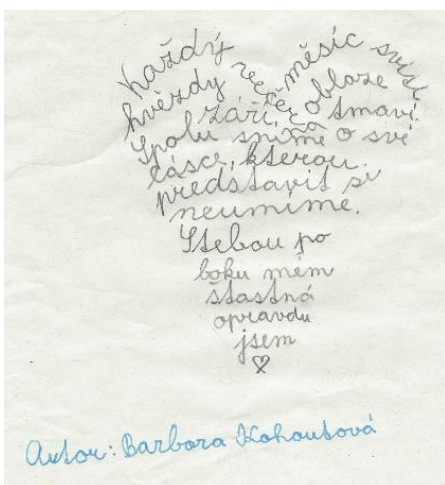 Každý večer měsíc svítí
hvězdy září, na obloze tmavé.
Spolu sníme o své
lásce, kterou
představit si
neumíme.
Stebou po
boku mém
šťastná
opravdu
jsem
♡
Autor: Barbora Kohoutová